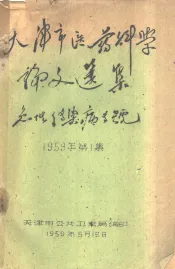 天津市医药科学
论文选集
急性传染病专号
1959年第1集
天津市公共卫生局编印
1959年5月12日